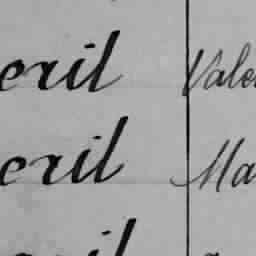 eril Vale
eril Ma